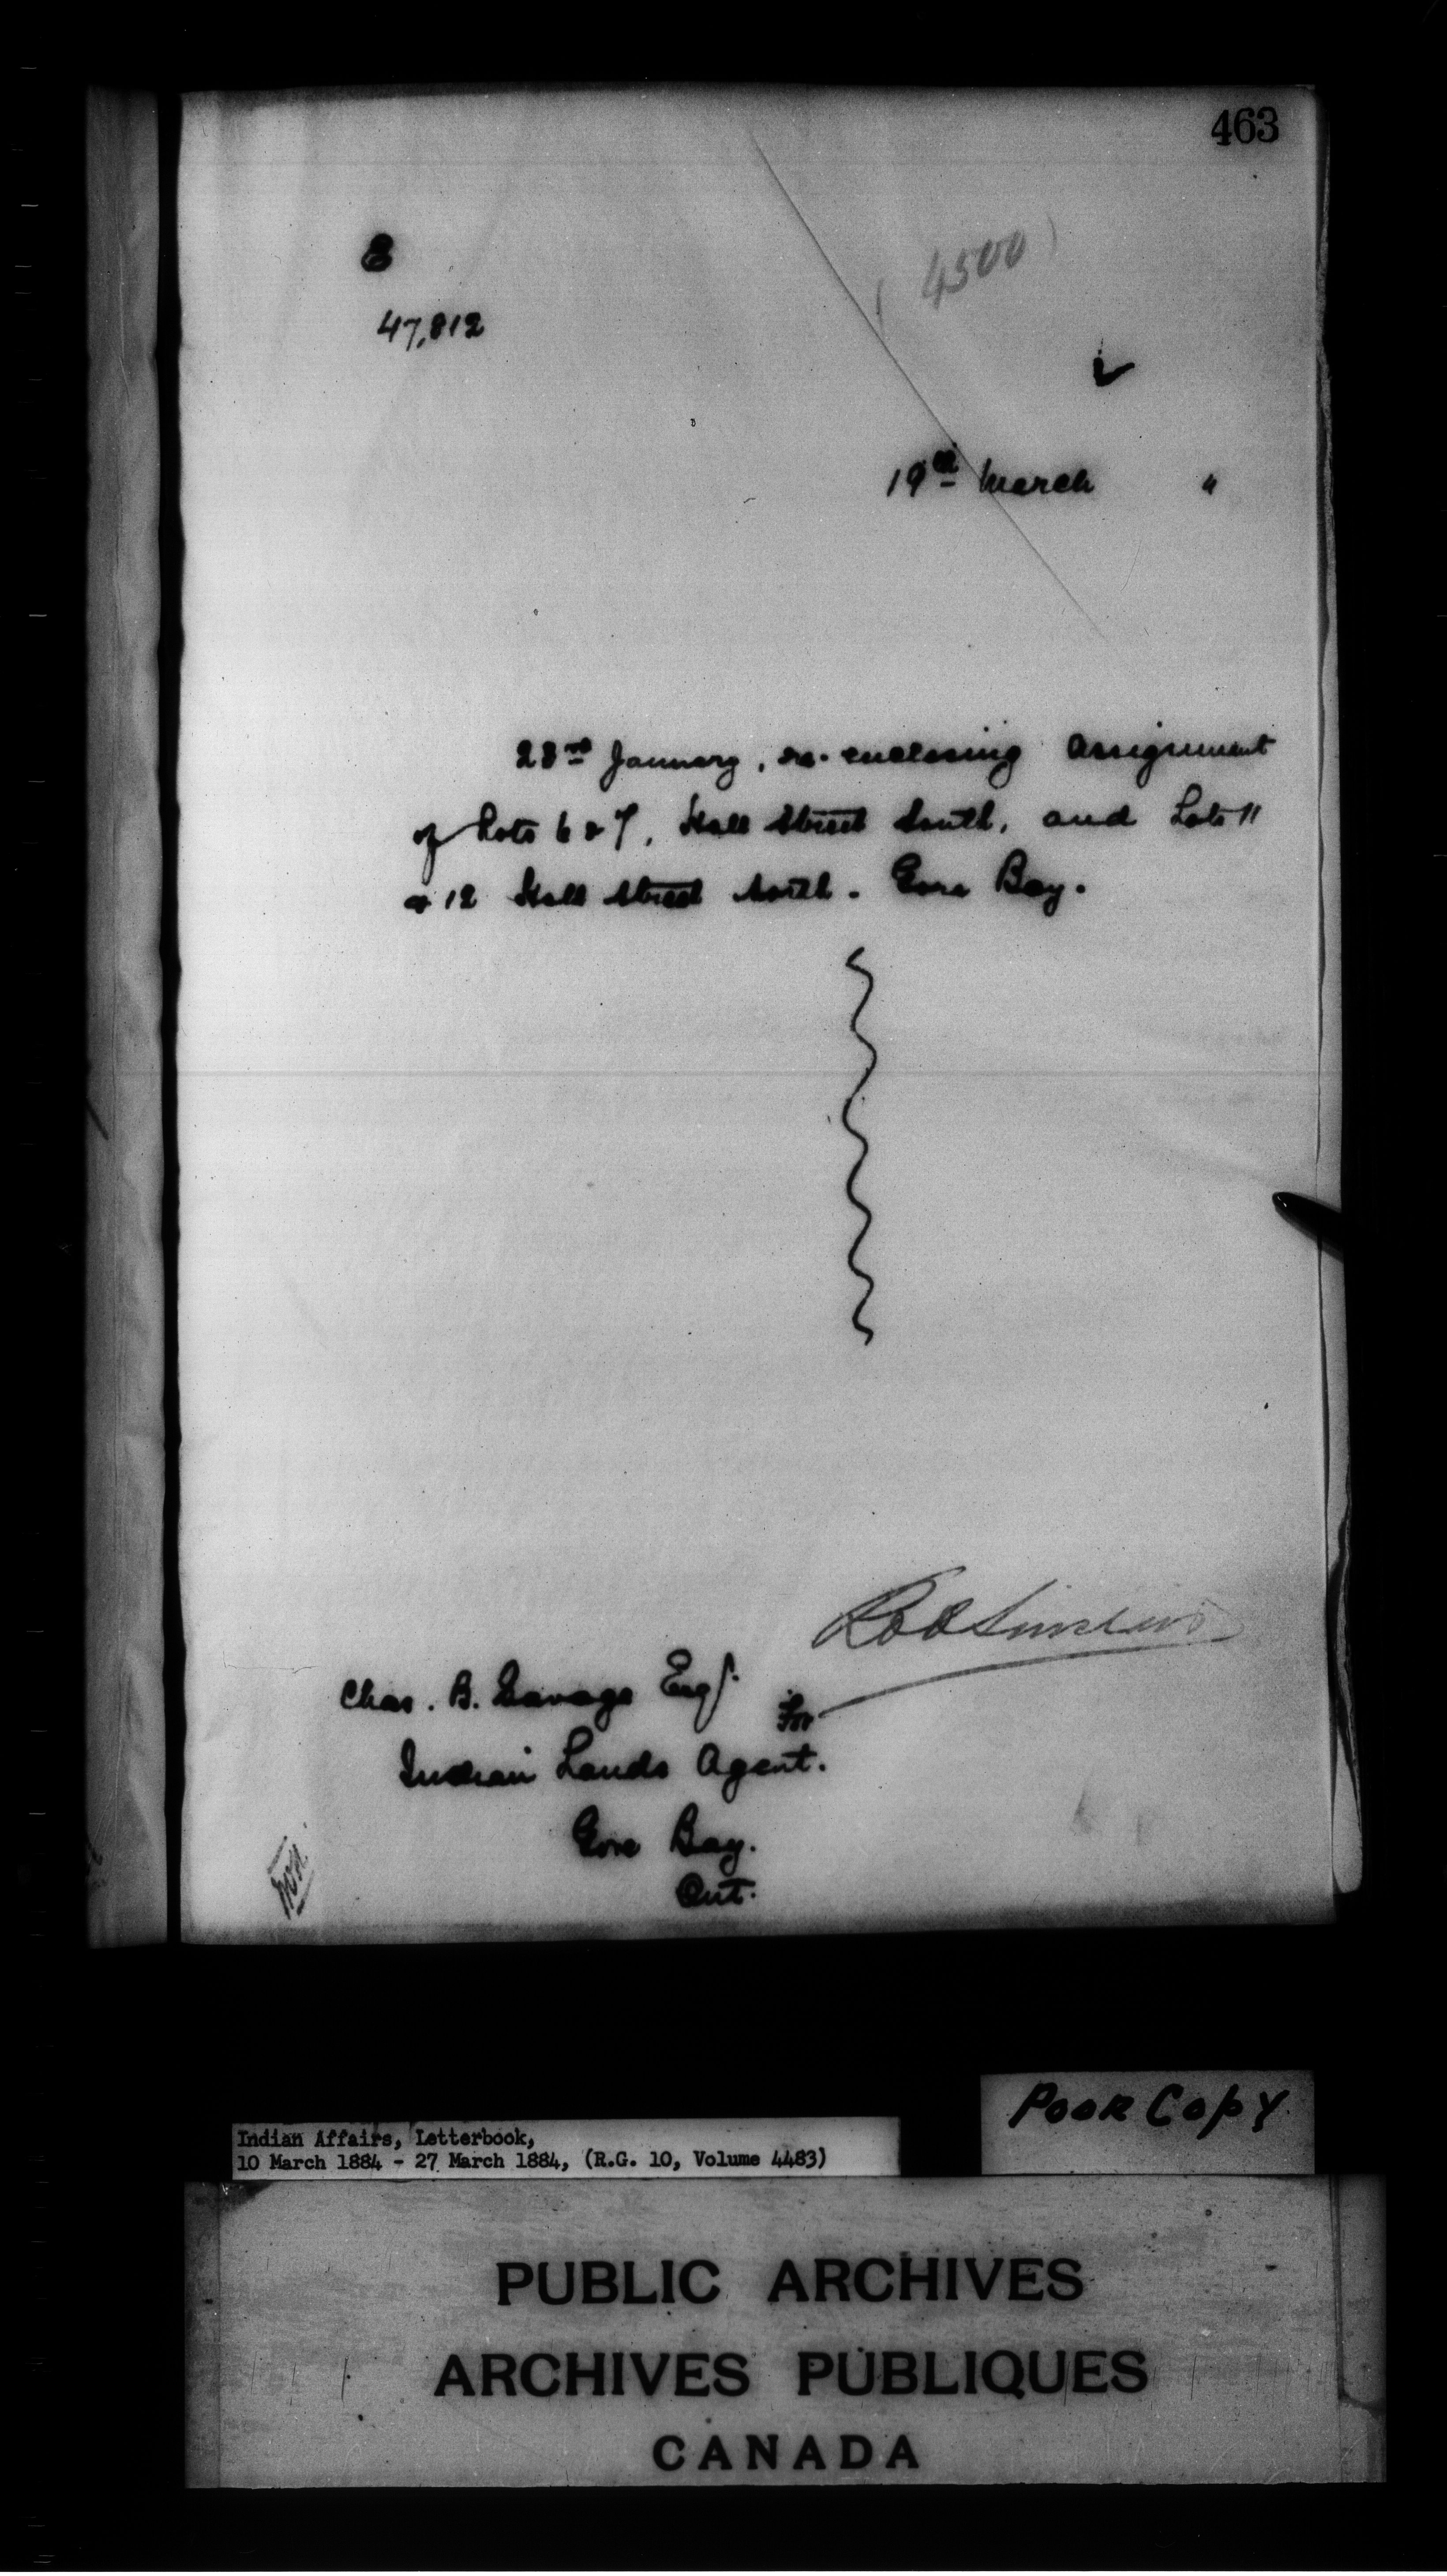 463
E
47,812
(4500)
19th March "
23rd January, re-enclosing assignment
of Lots 6 & 7, Hall Street South, and Lots 11
& 12 Hall Street North. Gore Bay.
Chas. B. Savage Esq.
for
Indian Lands Agent.
Gore Bay.
Ont.
Poor Copy
Indian Affairs, Letterbook,
10 March 1884 - 27 March 1884, (R.G. 10, Volume 4483)
PUBLIC ARCHIVES
ARCHIVES PUBLIQUES
CANADA